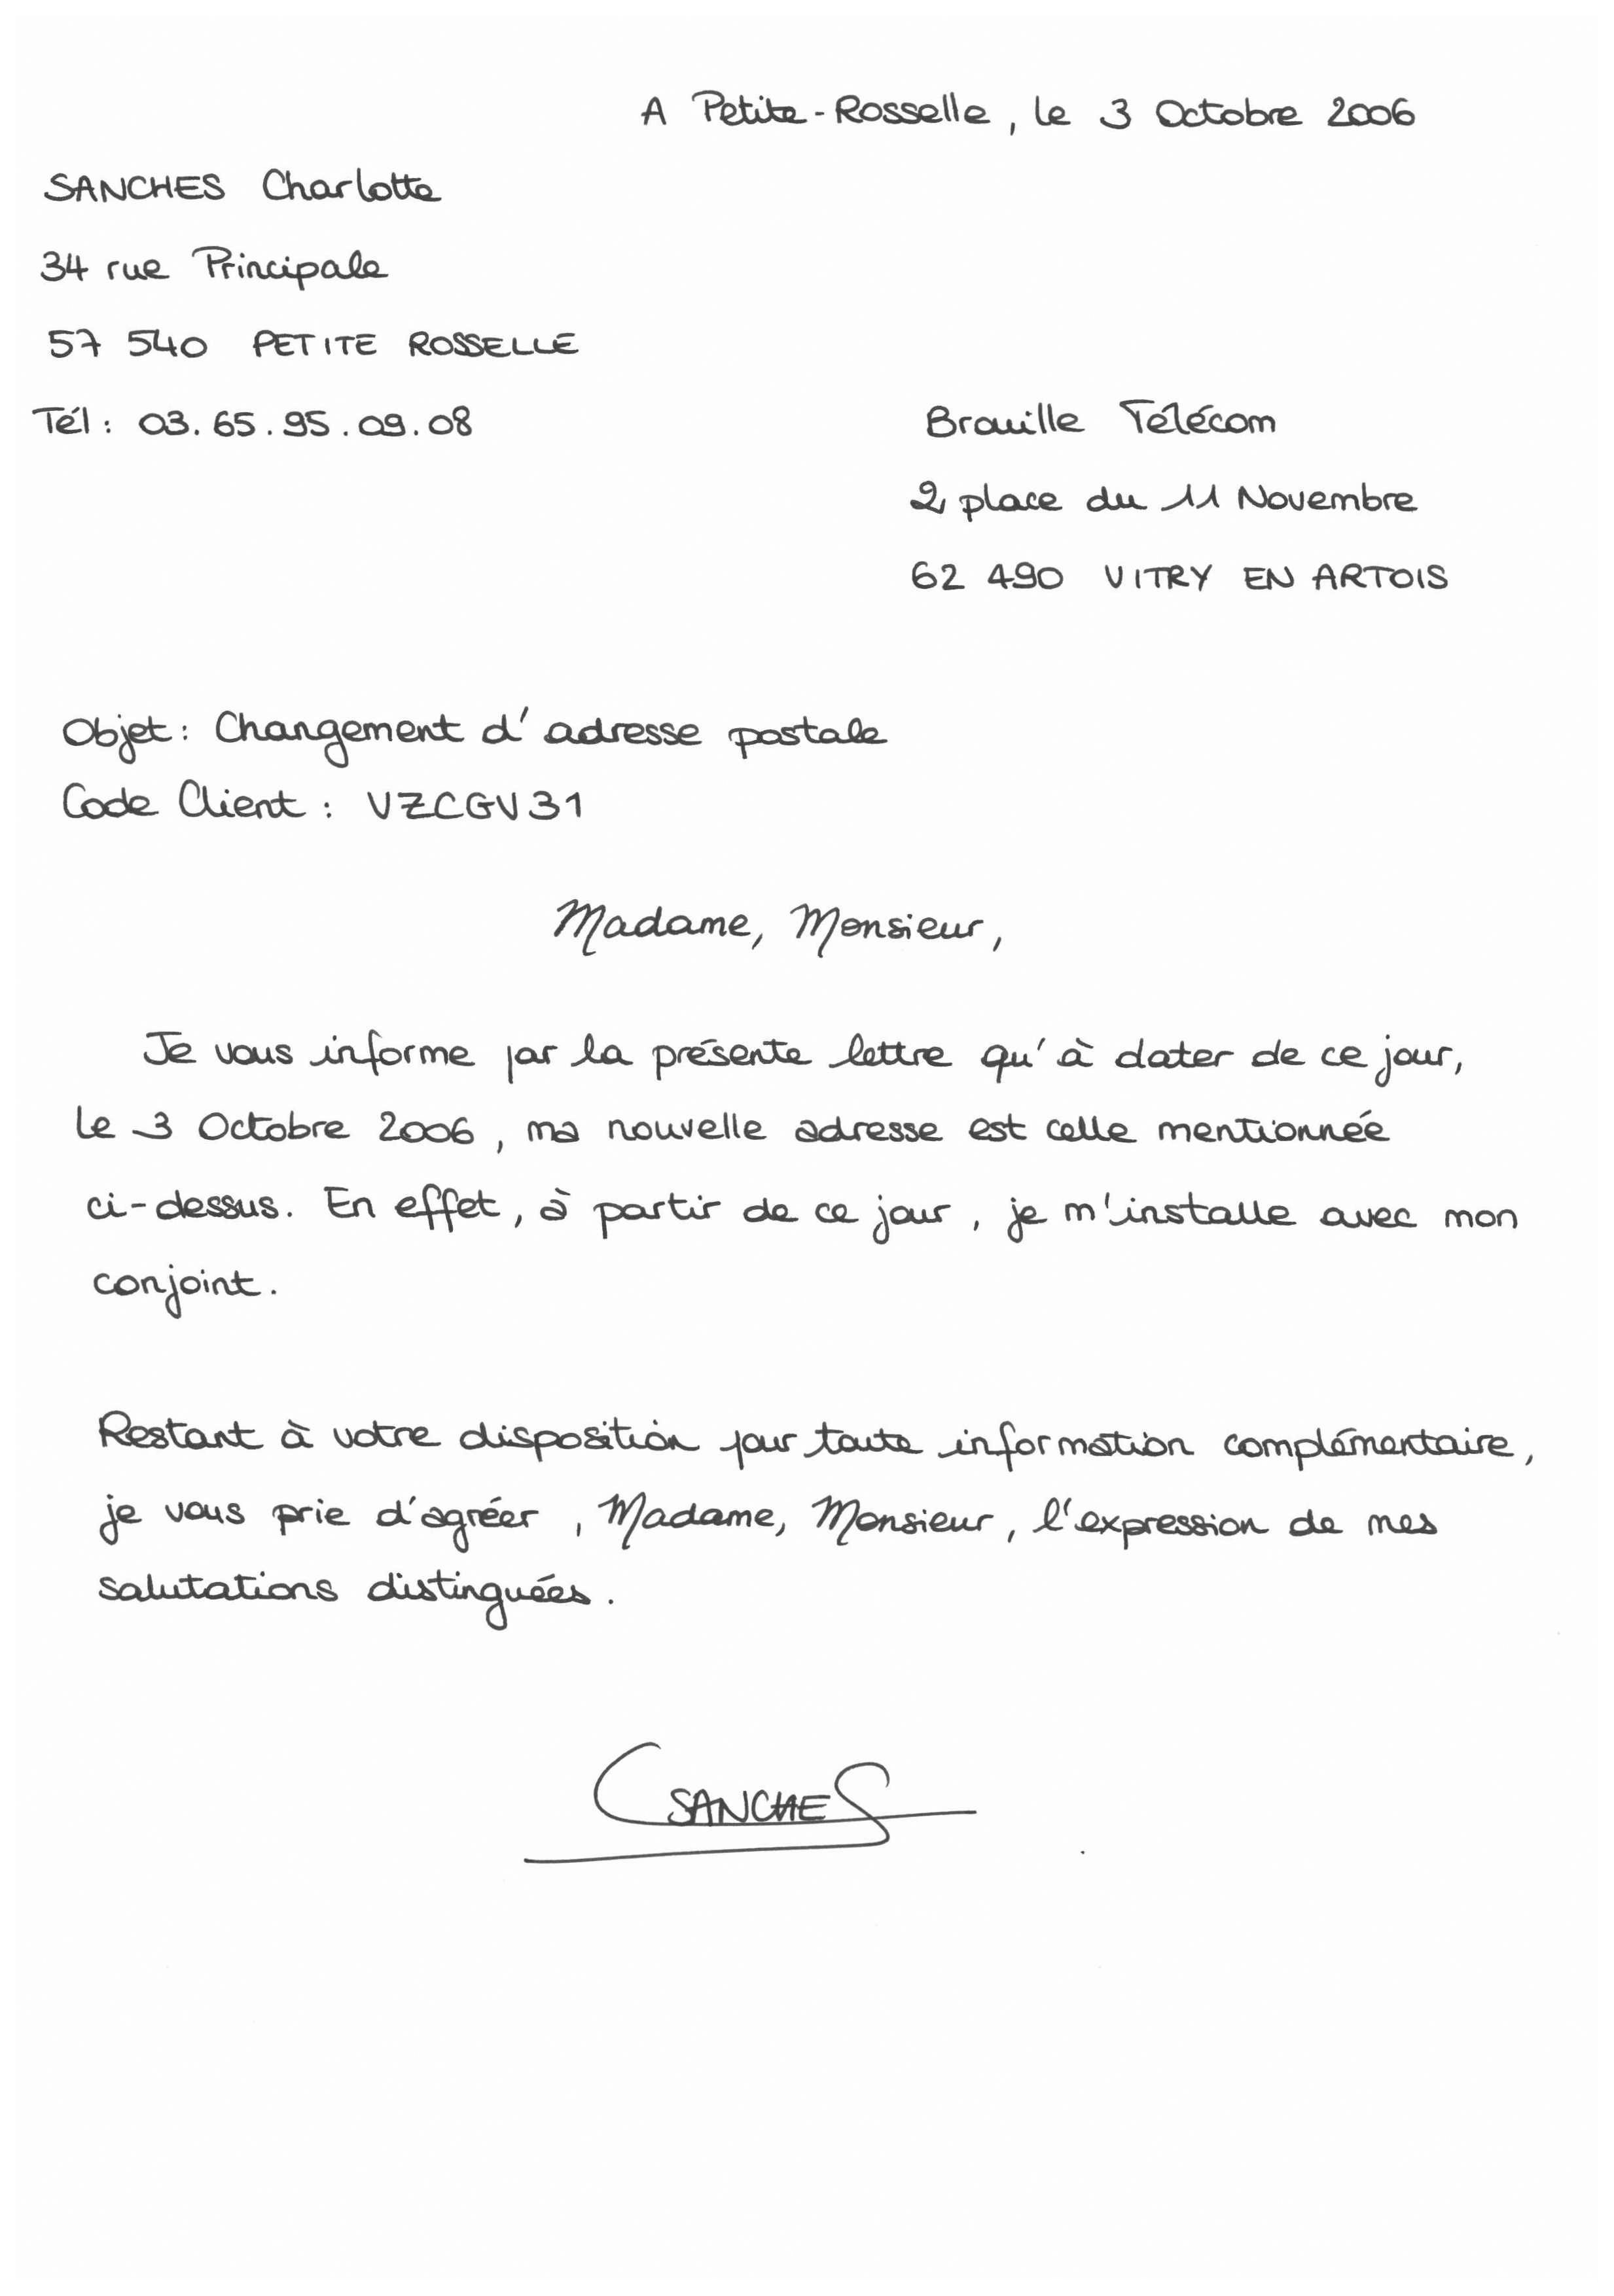 A Petite-Rosselle, le 3 Octobre 2006
SANCHES Charlotte
34 rue Principale
57 540 PETITE ROSSELLE
Tél : 03.65.95.09.08
Brouille Télécom
2, place du 11 Novembre
62 490 VITRY EN ARTOIS
Objet : Changement d'adresse postale
Code Client : VZCGV31
Madame, Monsieur,
Je vous informe par la présente lettre qu'à dater de ce jour,
le 3 Octobre 2006, ma nouvelle adresse est celle mentionnée
ci-dessus. En effet, à partir de ce jour, je m'installe avec mon
conjoint.
Restant à votre disposition pour toute information complémentaire,
je vous prie d'agréer, Madame, Monsieur, l'expression de mes
salutations distinguées.
C SANCHES